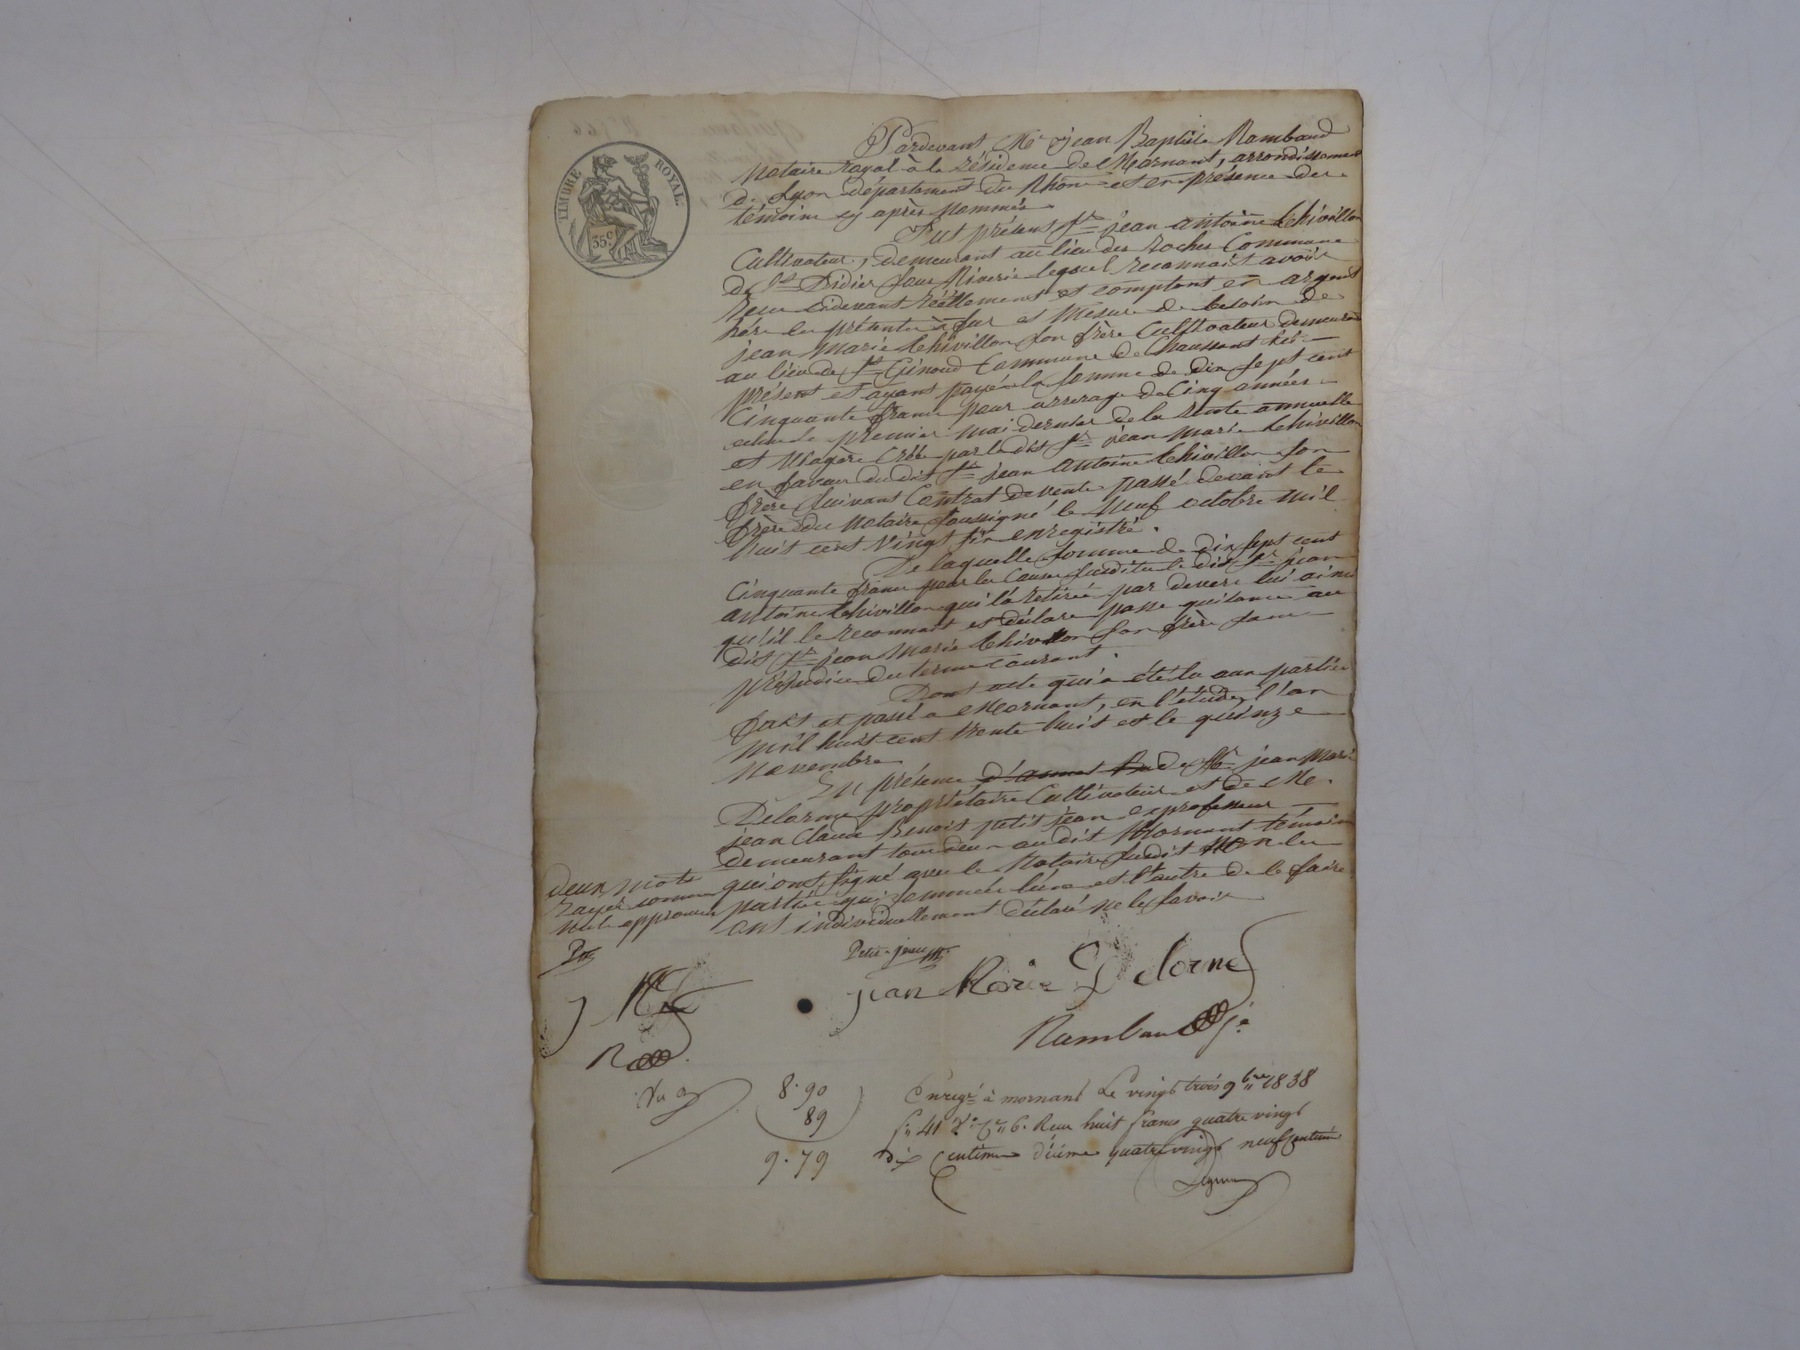 TIMBRE ROYAL.
35c
Pardevant Me jean Baptiste Rambaud
Notaire royal à la résidence de Mornant, arrondissement
de Lyon département du Rhône et en présence des
témoins cy après nommés
Fut présent Sr jean antoine Thivillon
Cultivateur, demeurant au lieu des rocher Commune
de St Didier sous Riverie lequel reconnait avoir
Reçu cidevant réellement et comptant en argent
hors la présente à fur et mesure de besoin de
jean marie Thivillon son frère Cultivateur demeurant
au lieu de St Commune de Chaussant ici
présent et ayant payé la somme de dix sept cent
Cinquante francs pour arrerage de Cinq années
echu le premier mai dernier de la rente annuelle
et viagère créé par le dit Sr jean marie thivillon
en faveur du dit Sr jean antoine thivillon son
frère suivant Contrat de vente passé devant le
frère du Notaire soussigné le Neuf octobre mil
huit cent vingt six enregistré.
De laquelle somme de dix sept cent
Cinquante francs pour les Causes susdites le dit Sr jean
antoine thivillon qui l'a retirée par devers lui ainsi
qu'il le reconnait et déclare passe quitance au
dit Sr jean marie thivillon son frère sans
préjudice du terme courant.
Dont acte qui a été lu aux parties
fait et passé à Mornant, en l'étude, l'an
mil huit cent trente huit et le quinze
Novembre
En présence de Mr jean Marie
Delorme propriétaire Cultivateur et de Me
jean Claude Benoit petit jean exprofesseur
demeurant tous deux au dit Mornant témoins
qui ont signé avec le Notaire susdit Non les
parties qui sommées l'une et l'autre de le faire
ont individuellement déclaré ne le savoir
deux mots
rayés comme
nuls approuvés
Petit-jean
jean Marie Delorme
Rambaud
Vu
8.90
89
9.79
Enregé à mornant Le vingt trois 9bre 1838
fo 41 Vo Ce 6. Reçu huit francs quatre vingt
dix Centimes décime quatre vingt neuf centimes